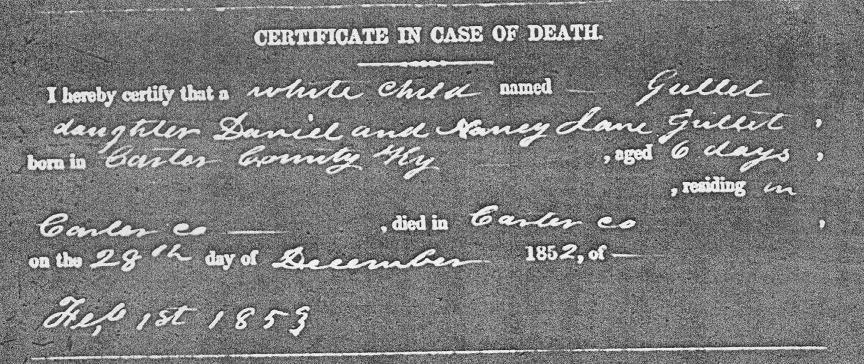 CERTIFICATE IN CASE OF DEATH.
I hereby certify that a white child named — Gullet
daughter Daniel and Nancy Jane Gullet,
born in Carter County Ky, aged 6 days,
, residing in
Carter co —, died in Carter co,
on the 28th day of December 1852, of —
Feb 1st 1853